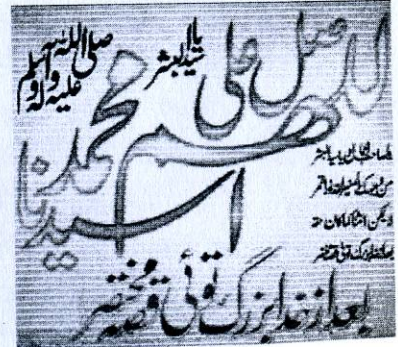 صلی اللہ علیہ وآلہ وسلم
یا سید البشر
اللهم صل علی
سیدنا محمد
یا صاحب الجمال و یا سید البشر
من وجہک المنیر لقد نور القمر
لا یمکن الثناء کما کان حقہ
بعد از خدا بزرگ توئی قصہ مختصر
بعد از خدا بزرگ توئی قصہ مختصر